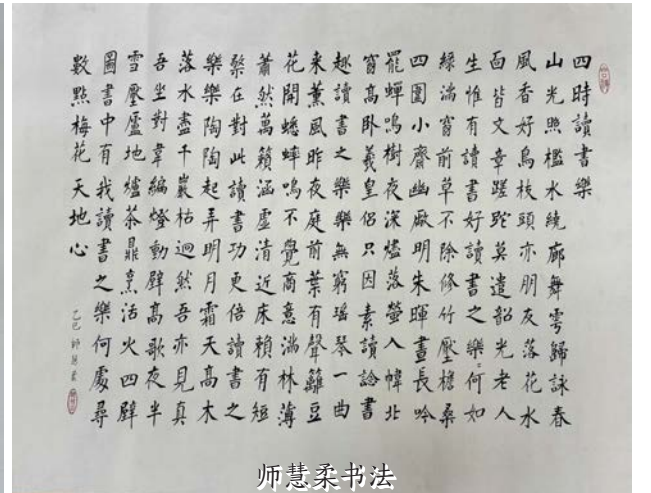 四時讀書樂
山光照檻水繞廊舞雩歸詠春
風香好鳥枝頭亦朋友落花水
面皆文章蹉跎莫遣韶光老人
生惟有讀書好讀書之樂:何如
綠滿窗前草不除修竹壓檐桑
四圍小齋幽敞明朱暉晝長吟
罷蟬鳴樹夜深燼落螢入幃北
窗高臥羲皇侶只因素讀諗書
趣讀書之樂樂無窮瑤琴一曲
来薰風昨夜庭前葉有聲籬豆
花開蟋蟀鳴不覺商意滿林薄
蕭然萬籟涵虛清近床賴有短
檠在對此讀書功更倍讀書之
樂樂陶陶起弄明月霜天高木
落水盡千巖枯迥然吾亦見真
吾坐對韋編燈動壁高歌夜半
雪壓廬地爐茶鼎烹活火四壁
圖書中有我讀書之樂何處尋
數點梅花天地心
乙巳師慧柔
师慧柔书法